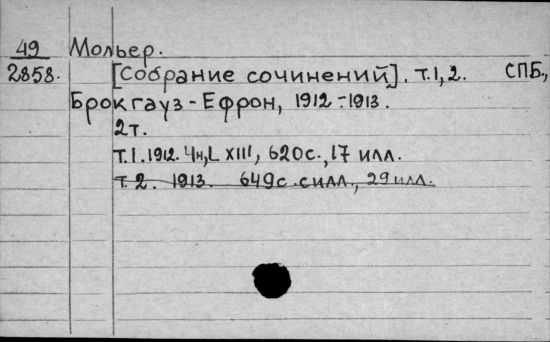 49 Мольер.
2858. [Собрание сочинений]. т.1, 2. СПБ.,
Брокгауз-Ефрон, 1912-1913.
2т.
т.1. 1912. 4н, L XIII, 620с., 17 илл.
т. 2. 1913. 649с. силл., 29 илл.